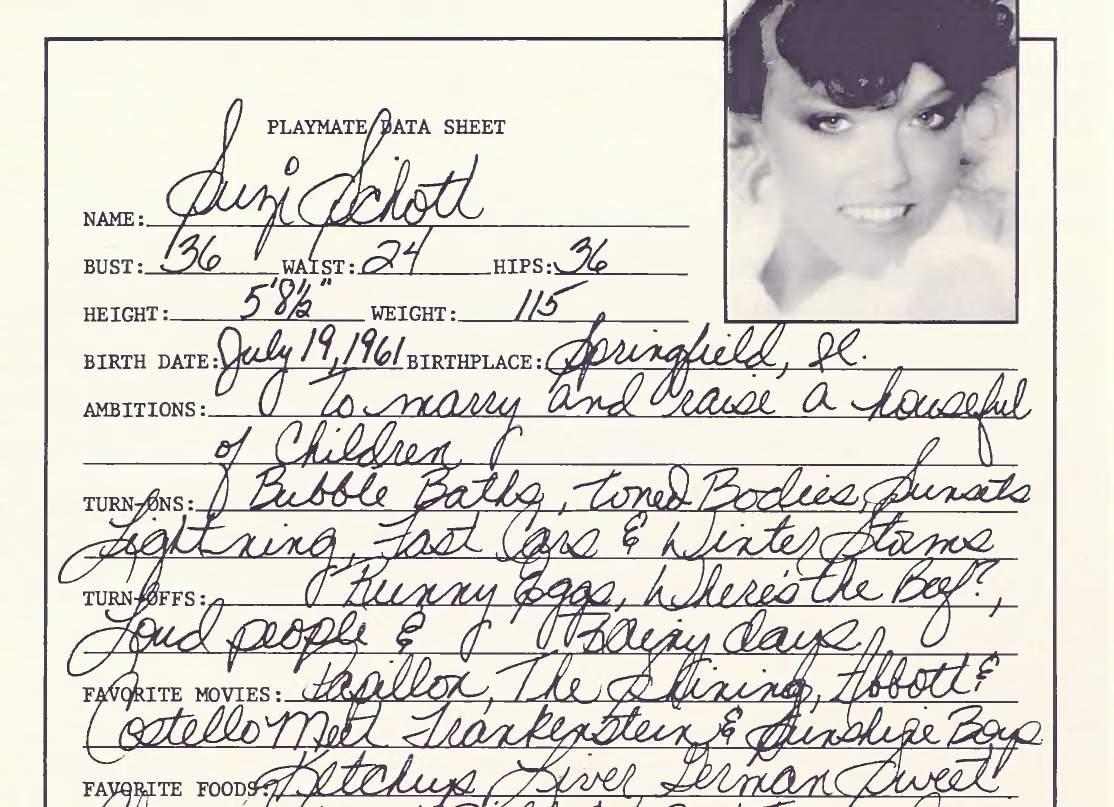 PLAYMATE DATA SHEET
NAME: Suzi Schott
BUST: 36 WAIST: 24 HIPS: 36
HEIGHT: 5'8½" WEIGHT: 115
BIRTH DATE: July 19, 1961 BIRTHPLACE: Springfield, Il.
AMBITIONS: To marry and raise a houseful
of Children
TURN-ONS: Bubble Baths, toned Bodies, Sunsets
Lightning, Fast Cars & Winter Storms
TURN-OFFS: Runny Eggs, Where's the Beef?,
Loud people & Rainy days
FAVORITE MOVIES: Papillon, The Shining, Abbott &
Costello Meet Frankenstein & Sunshine Boys
FAVORITE FOODS: Ketchup, Liver, German Sweet